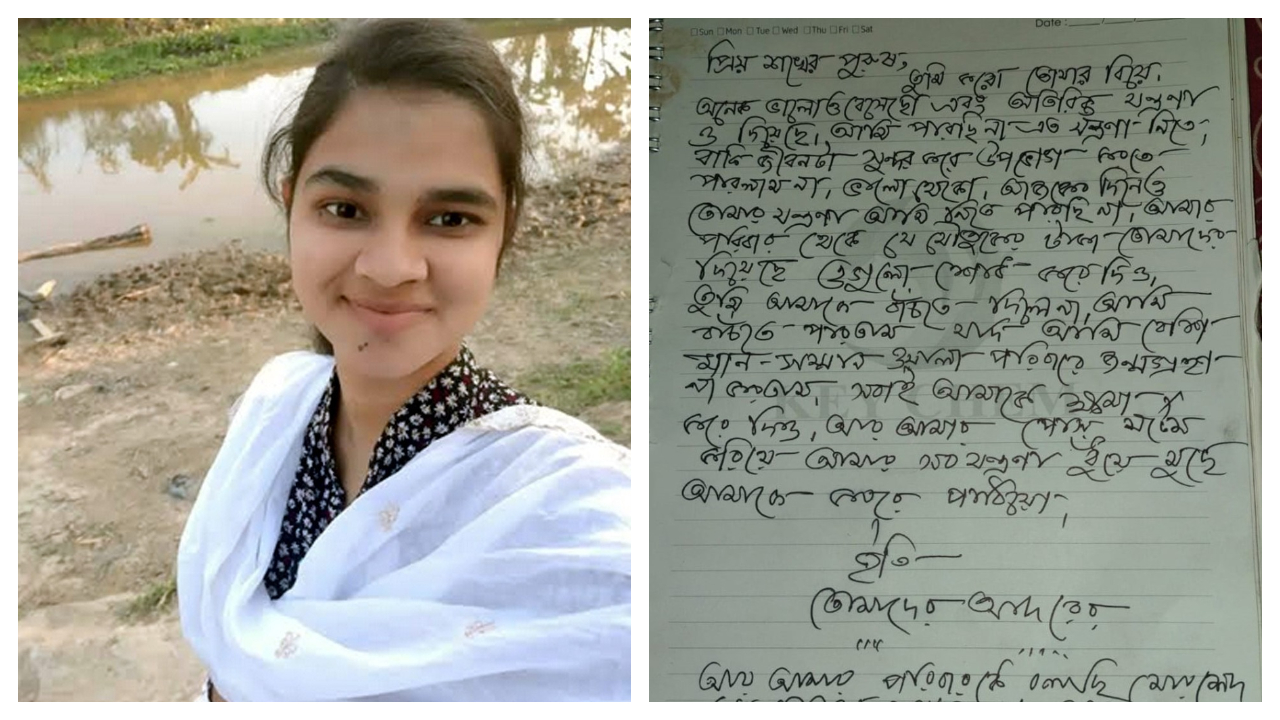 Date : / /
Sun Mon Tue Wed Thu Fri Sat
প্রিয় শখের পুরুষ,
তুমি করো তোমার বিয়ে.
অনেক ভালোও বেসেছো এবং অতিরিক্ত যন্ত্রণা
ও দিয়েছে, আমি পারছি না এত যন্ত্রণা নিতে,
বাকি জীবনটা সুন্দর করে উপভোগ করতে
পারলাম না, ভালো থেকো, আজকের দিনেও
তোমার যন্ত্রণা আমি নিতে পারছি না, আমার
পরিবার থেকে যে যৌতুকের টাকা তোমাদের
দিয়েছে ওগুলো শোধ করে দিও,
তুমি আমাকে বাঁচতে দিলে না, আমি
বাঁচতে পারতাম যদি আমি বেশি
মান-সম্মান ওয়ালা পরিবারে জন্মগ্রহণ
না করতাম, সবাই আমাকে ক্ষমা
করে দিও, আর আমার
করিয়ে আমার সব যন্ত্রণা ধুঁয়ে মুছে
আমাকে কবরে পাঠাইয়া,
ইতি
তোমাদের আদরের
আর আমার পরিবারকে বলছি
KEY CHEM